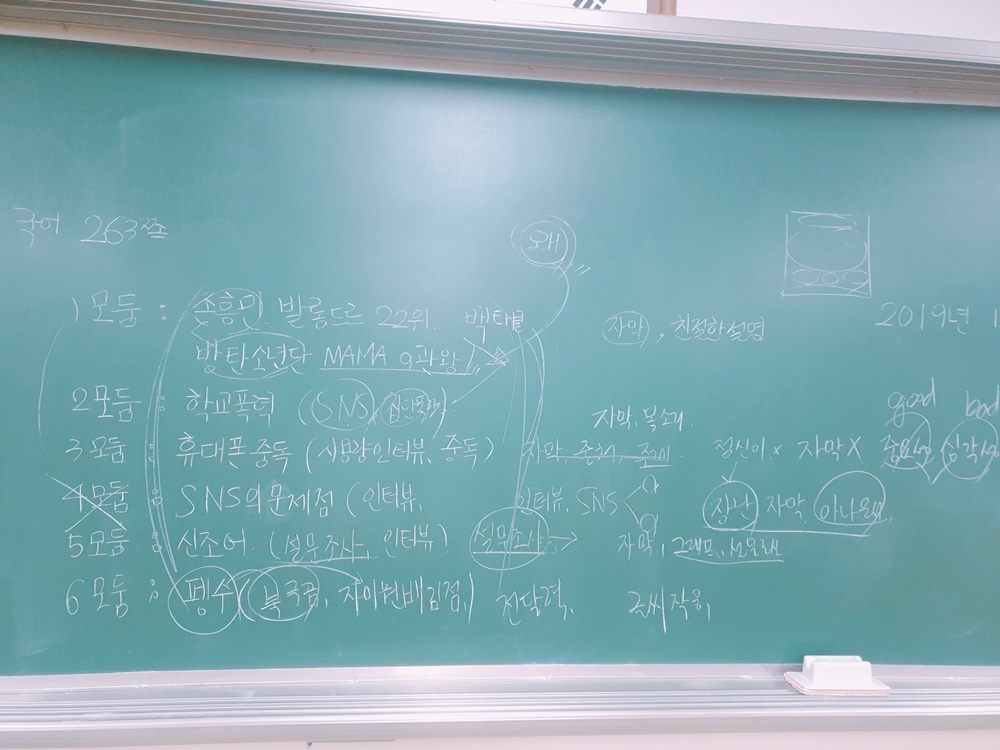 국어 263쪽
왜
1모둠 : 손흥민 발롱도르 22위. 백타불
자막, 친절한 설명
2019년 1
방탄소년단 MAMA 9관왕
2모둠 : 학교폭력 (SNS, 집단폭행)
자막, 목소리.
good bad
3모둠 : 휴대폰 중독 (사용량 인터뷰, 중독) 자막, 존체,
정신이 x 자막 X 중요성 심각성
4모둠 : SNS의 문제점 (인터뷰, 인터뷰, SNS
장난 자막, 아나운서,
5모둠 : 신조어 (설문조사, 인터뷰) 설문조사 → 자막, 그래프, 선물로선
6모둠 : 펭수 (북극곰, 자이언배김점,) 전달력, 글씨작음,